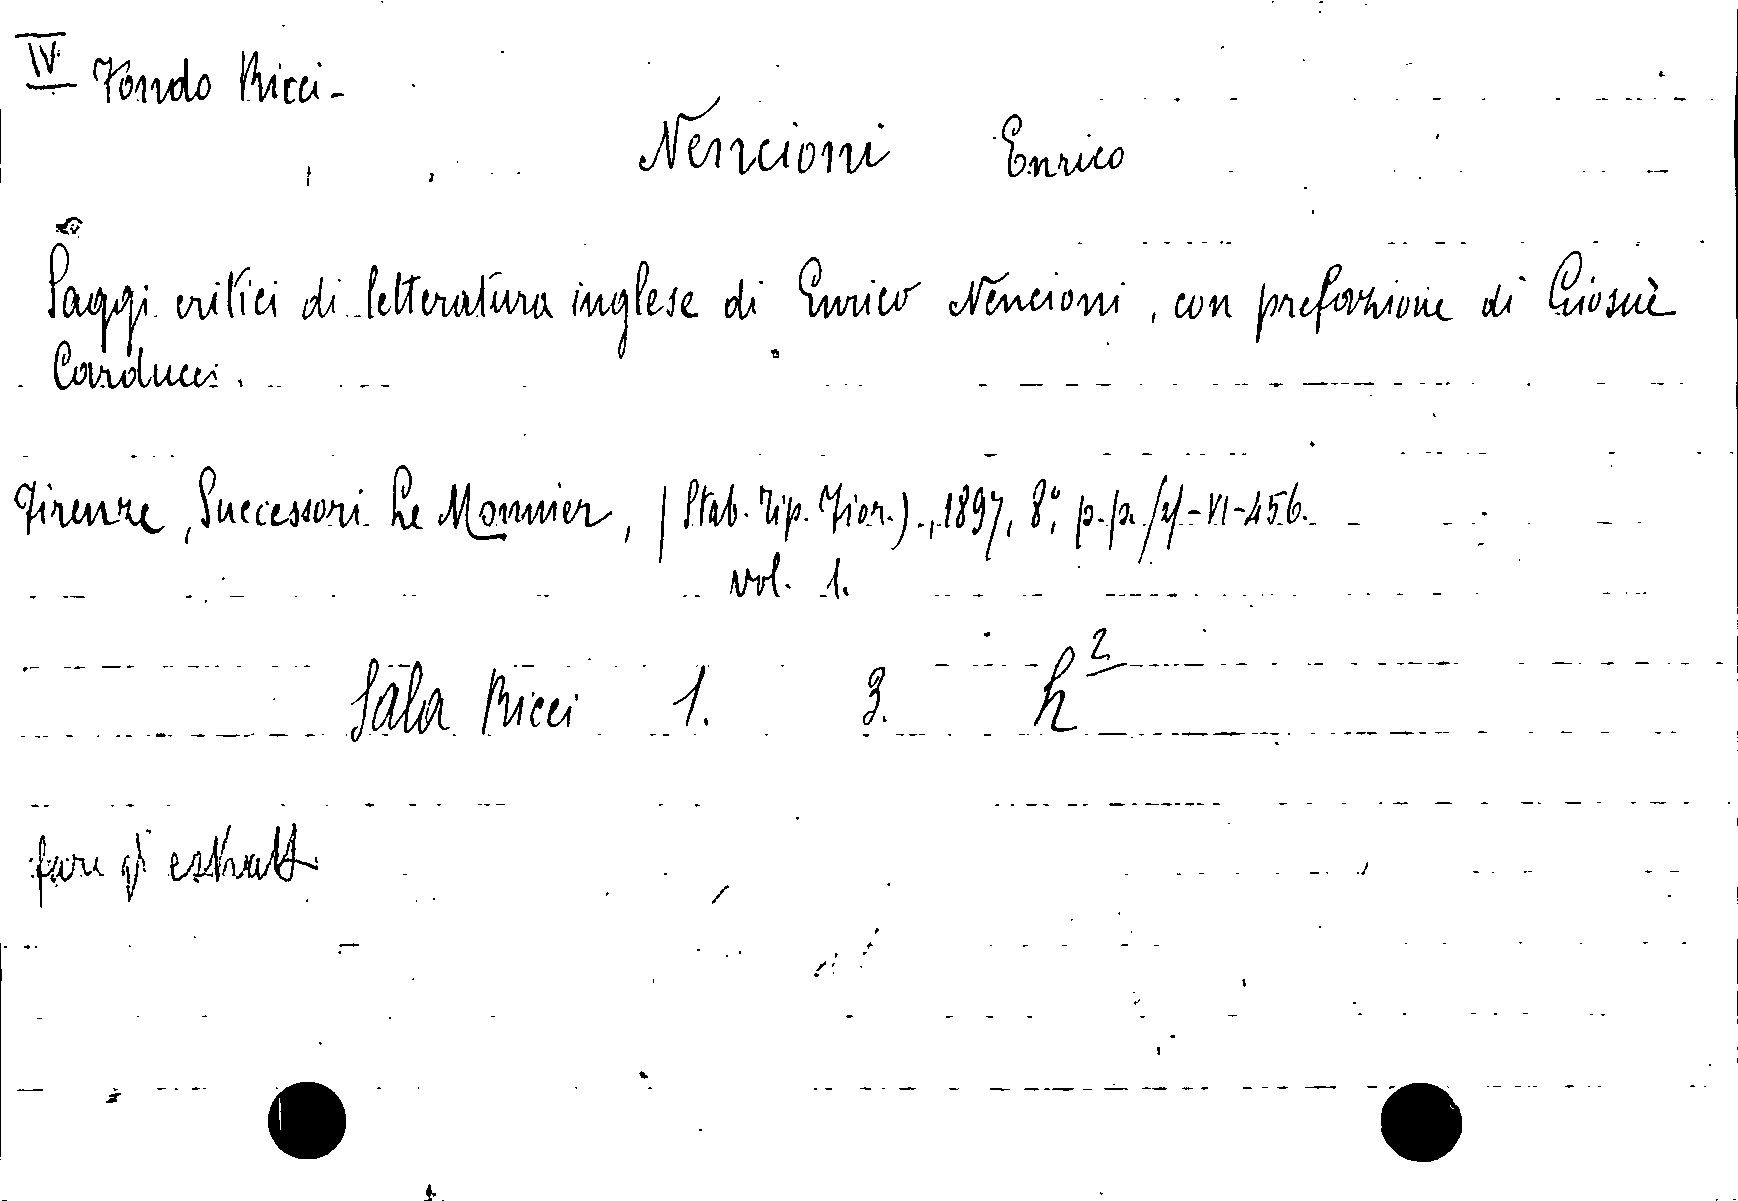 IV Fondo Ricci -
Nencioni Enrico
Saggi critici di letteratura inglese di Enrico Nencioni, con prefazione di Giosuè
Carducci.
Firenze, Successori Le Monnier, (Stab. Tip. Fior.)., 1897, 8°, p.p. /2/-VI-456.
vol. 1.
Sala Ricci 1. 3. h²
fare gl' estratt